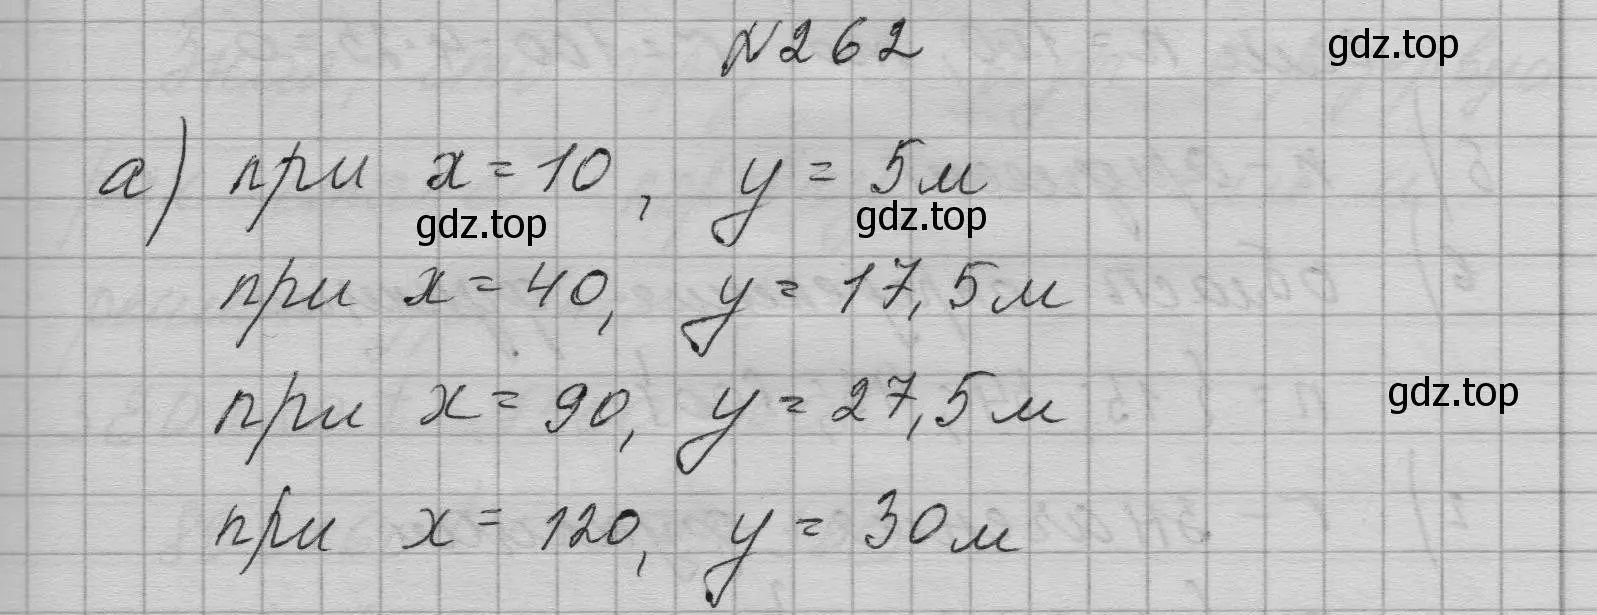 №262 gdz.top
а) при x = 10, y = 5м
gdz.top gdz.top
при x = 40, y = 17,5м
при x = 90, y = 27,5м gdz.top
при x = 120, y = 30м